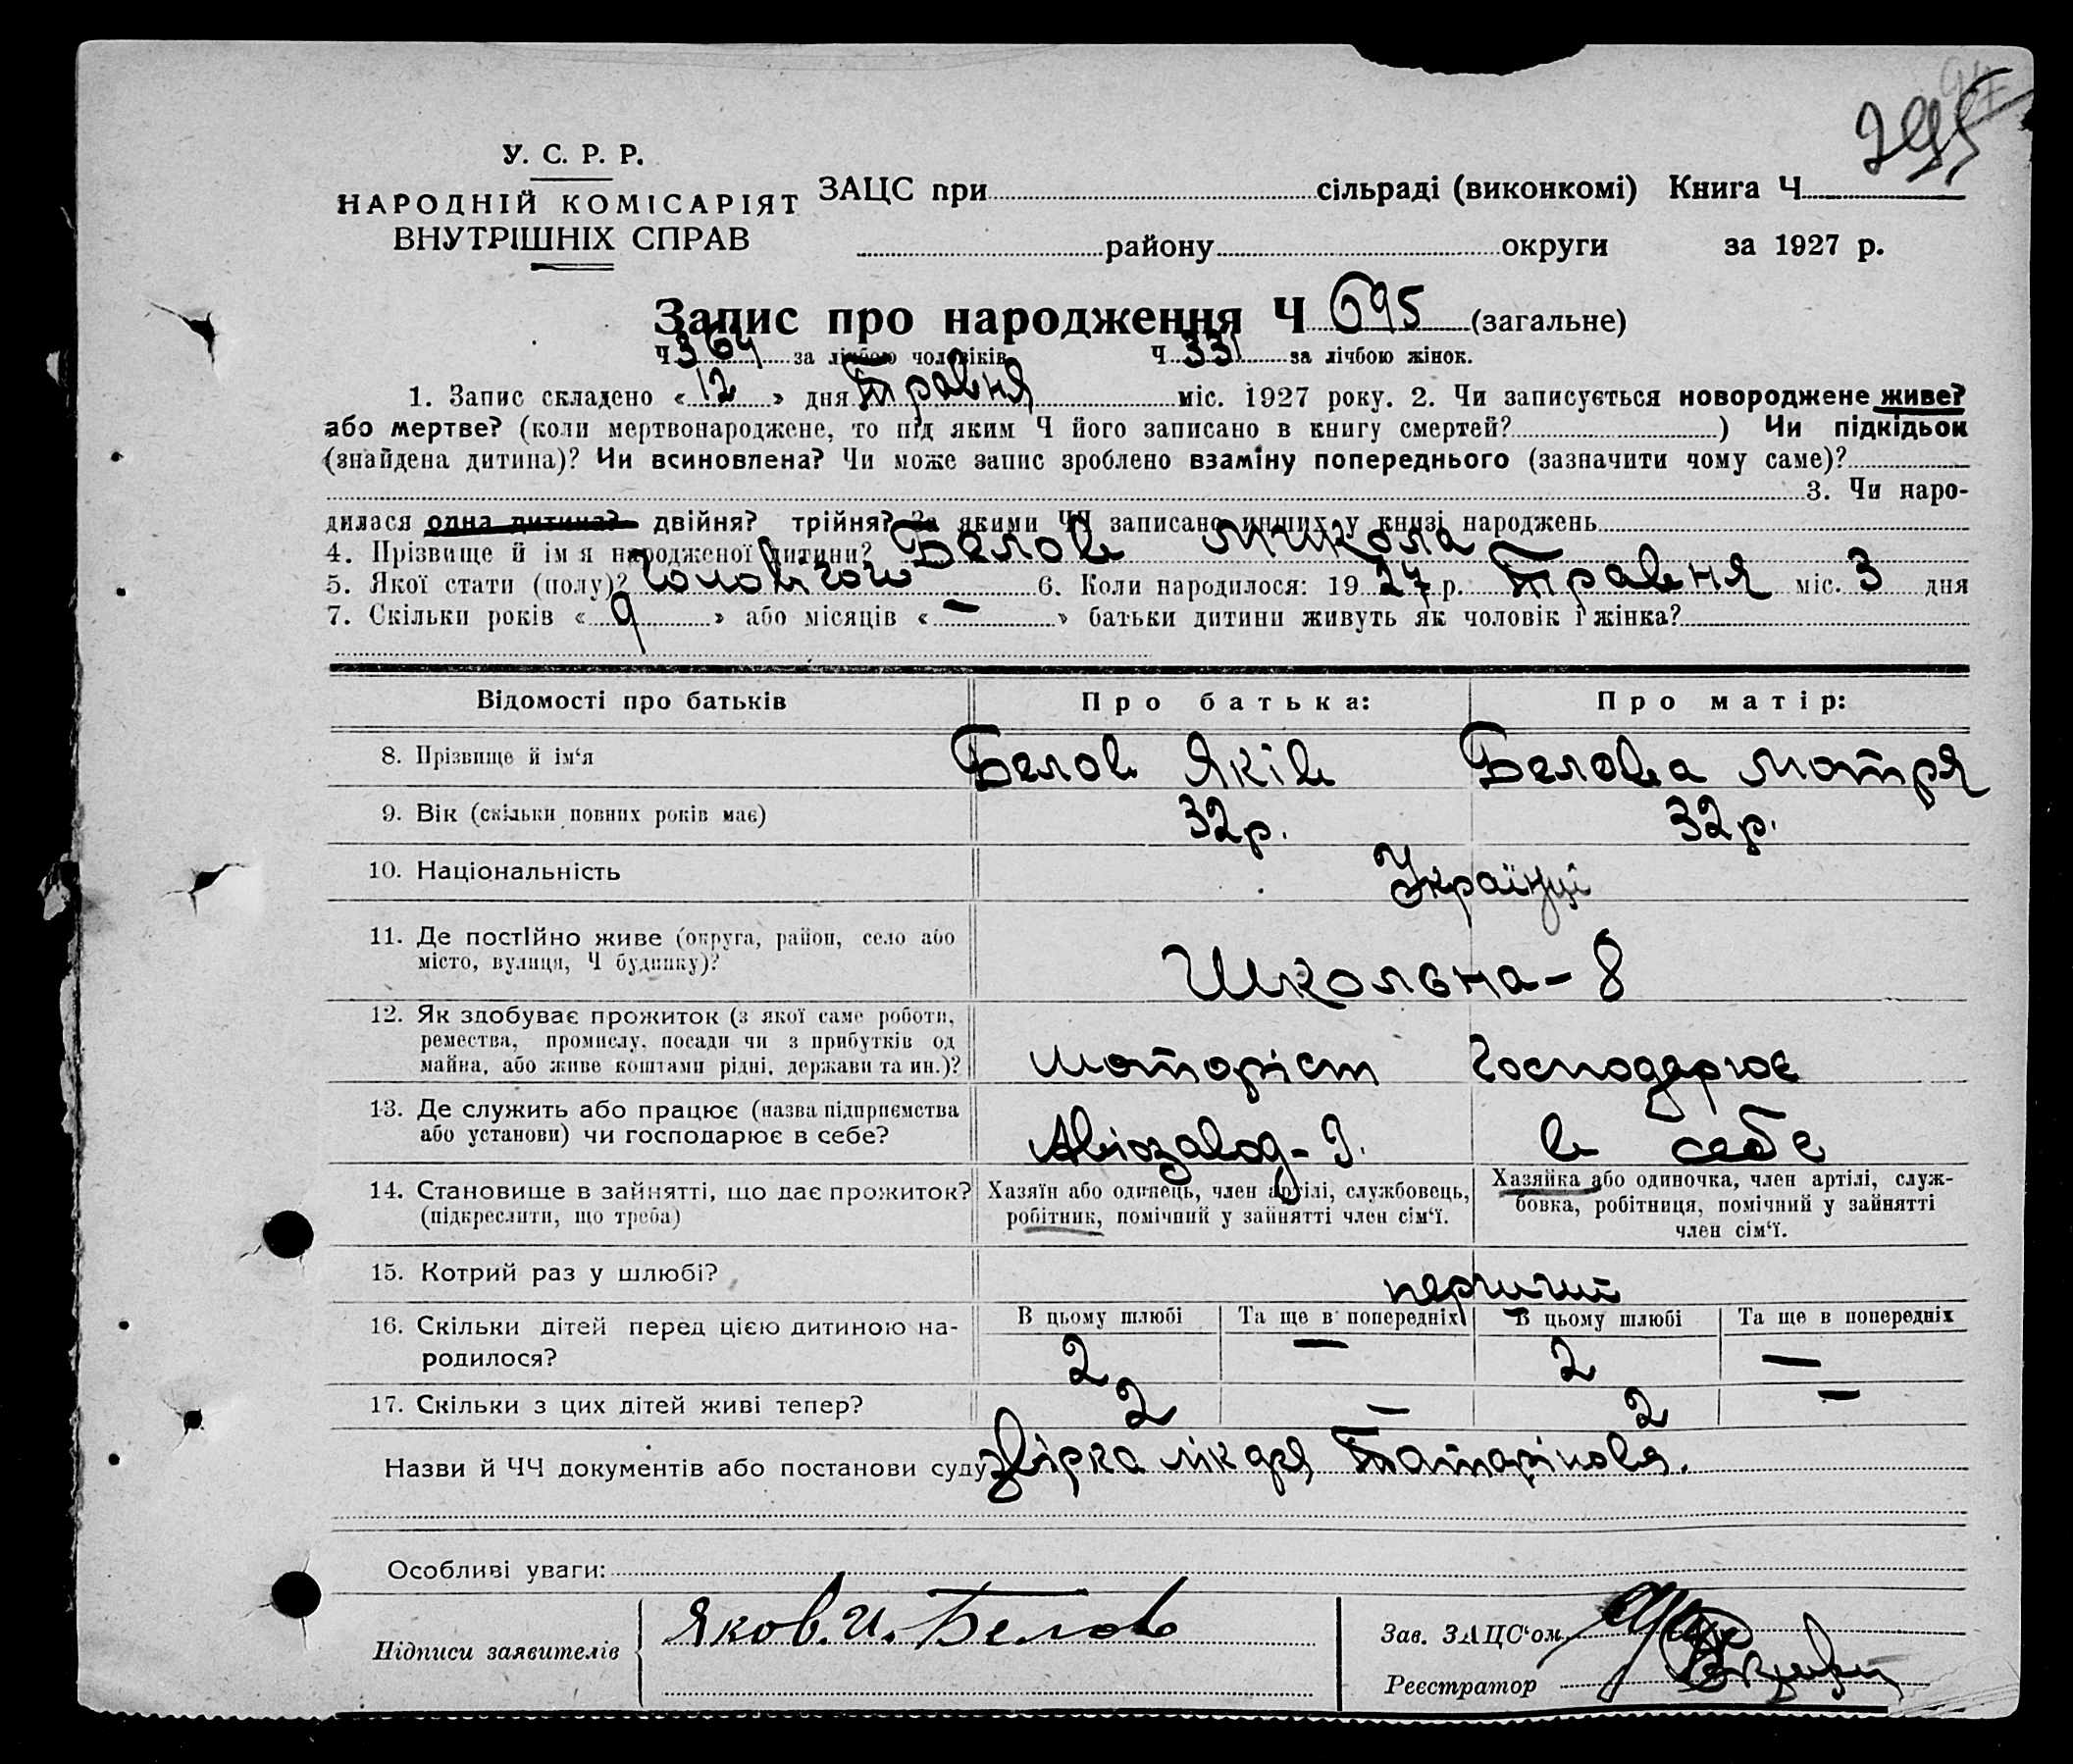 295
У. С. Р. Р.
НАРОДНІЙ КОМІСАРІЯТ
ВНУТРІШНІХ СПРАВ
ЗАЦС при сільраді (виконкомі) Книга Ч
району округи за 1927 р.
Запис про народження Ч 695 (загальне)
Ч 364 за лічбою чоловіків Ч 331 за лічбою жінок.
1. Запис складено « 12 » дня Травня міс. 1927 року. 2. Чи записується новороджене живе?
або мертве? (коли мертвонароджене, то під яким Ч його записано в книгу смертей? ) Чи підкідьок
(знайдена дитина)? Чи всиновлена? Чи може запис зроблено взаміну попереднього (зазначити чому саме)?
3. Чи наро-
дилася одна дитина? двійня? трійня? За якими ЧЧ записано инших у книзі народжень
4. Прізвище й ім я народженої дитини? Бєлов Микола
5. Якої стати (полу)? чоловічого 6. Коли народилося: 1927 р. Травня міс. 3 дня
7. Скільки років « 9 » або місяців « — » батьки дитини живуть як чоловік і жінка?
Відомості про батьків Про батька: Про матір:
8. Прізвище й ім‘я Бєлов Яків Бєлова Мотря
9. Вік (скільки повних років має) 32 р. 32 р.
10. Національність Українці
11. Де постійно живе (округа, район, село або
місто, вулиця, Ч будинку)? Школьна – 8
12. Як здобуває прожиток (з якої саме роботи,
ремества, промислу, посади чи з прибутків од
майна, або живе коштами рідні, держави та ин.)? моторіст господарює
13. Де служить або працює (назва підприємства
або установи) чи господарює в себе? Авіозавод – 9. в себе
14. Становище в зайнятті, що дає прожиток?
(підкреслити, що треба)
Хазяїн або одинець, член артілі, службовець,
робітник, помічний у зайнятті член сім‘ї.
Хазяйка або одиночка, член артілі, служ-
бовка, робітниця, помічний у зайнятті
член сім‘ї.
15. Котрий раз у шлюбі? перший
16. Скільки дітей перед цією дитиною на-
родилося?
В цьому шлюбі Та ще в попередніх В цьому шлюбі Та ще в попередніх
2 — 2 —
17. Скільки з цих дітей живі тепер? 2 — 2 —
Назви й ЧЧ документів або постанови суду звірка лікаря Татарінова.
Особливі уваги:
Підписи заявителів Яков. И. Белов
Зав. ЗАЦС‘ом
Реєстратор